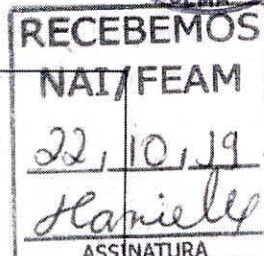 RECEBEMOS
NAI/FEAM
22,10,19
ASSINATURA